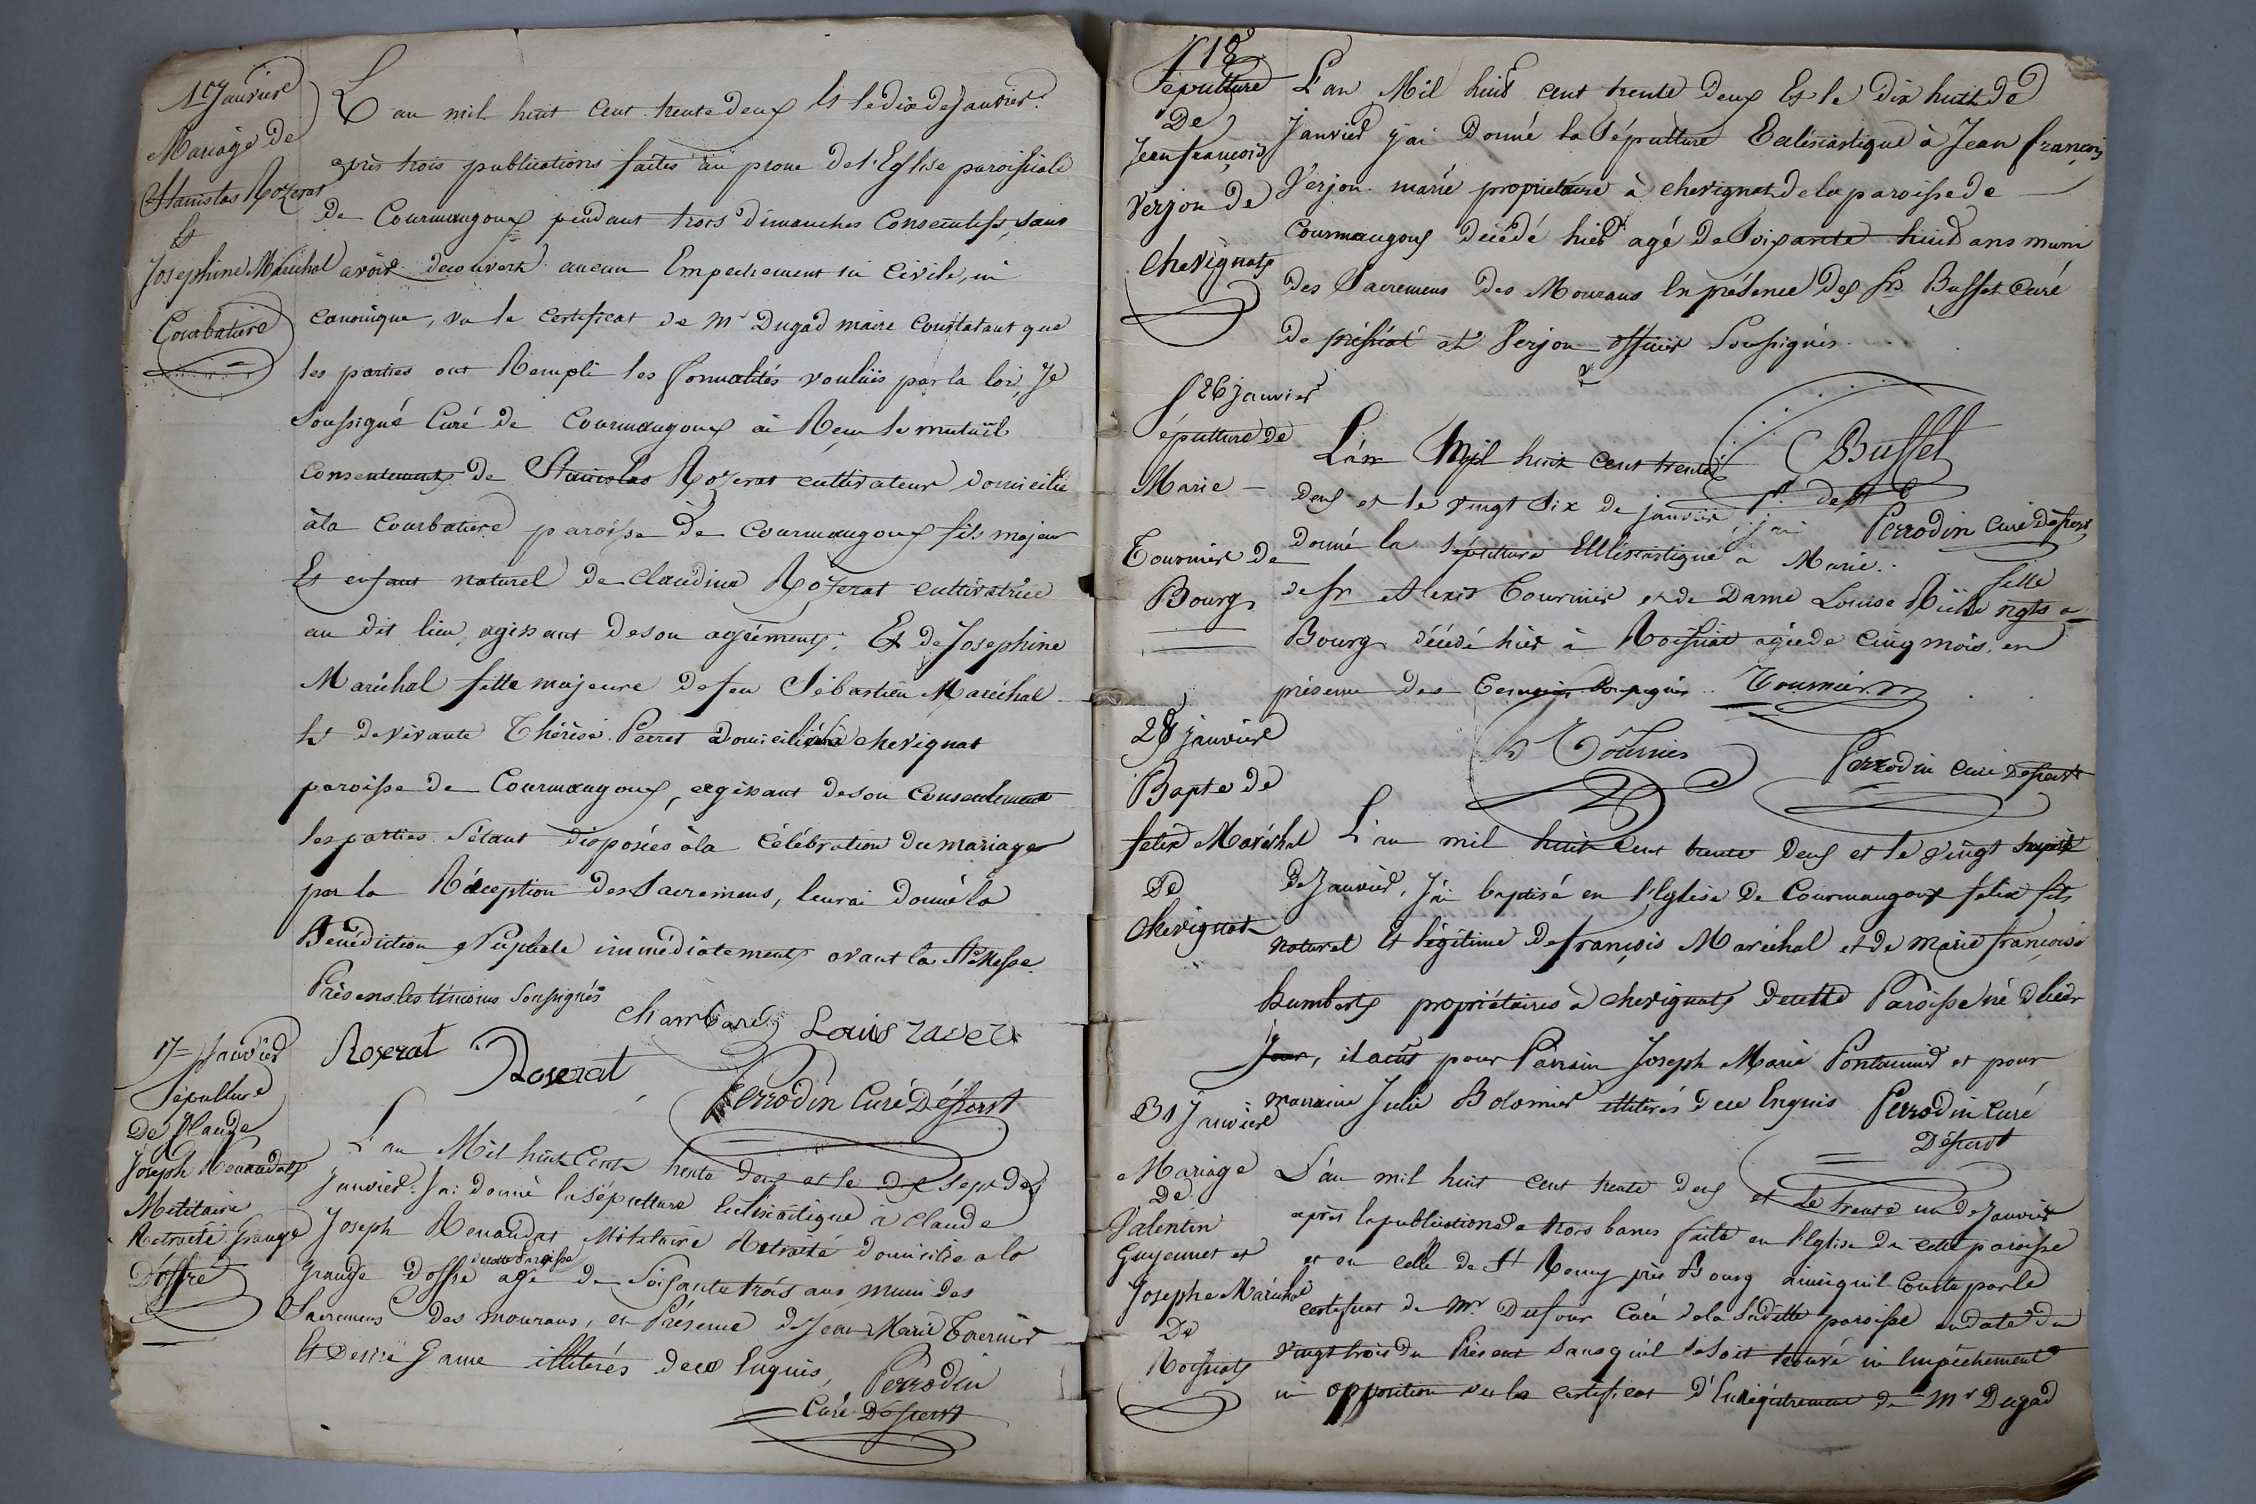 1er Janvier
Mariage de
Stanislas Rozerat
Et
Josephine Maréchal
Courbature
L'an mil huit cent trente deux Et le dix de Janvier.
après trois publications faites au prone de l'Eglise paroissiale
de Courmangoux pendant trois dimanches Consecutifs, sans
avoir decouvert aucun Empechement ni Civile, ni
canonique, vu le certificat de Mr Dugad maire Constatant que
les parties ont Rempli les formalités voulues par la loi, Je
Soussigné Curé de Courmangoux ai Reçu le mutuel
consentement de Stanislas Rozerat cultivateur domicilié
à la Courbatiere paroisse de Courmangoux fils majeur
Et enfant naturel de Claudine Rozerat cultivatrice
au dit lieu, agissant de son agrément. Et de Josephine
Maréchal fille majeure de feu Sébastien Maréchal
Et de vivante Thérèse Perret domiciliée à chevignat
paroisse de Courmangoux, agissant de son Consentement
les parties s'étant disposées à la Célébration du mariage
par la Réception des Sacremens, leur ai donné la
Bénédiction Nuptiale immédiatement avant la Ste Messe.
Présens les témoins Soussignés
Chambard Louis
Rozerat Rozerat
Perrodin Curé Déssert
17 Janvier
Sépulture
De Claude
Joseph Renaudat
Militaire
Retraité Grange
Doffre
L'an Mil huit Cent trente deux et le dix sept de
Janvier. J'ai donné la sépulture Ecclésiastique à Claude
Joseph Renaudat Militaire Retraité domicilié a la
Grange Doffre de cette Paroisse agé de Soixante trois ans muni des
Sacremens des mourans, en Présence de Jean Marie Tournier
Et Desiré Game illiterés de ce Enquis,
Perrodin
Curé Dessert
18
Sépulture
De
Jean françois
Verjon de
Chevignat
L'an Mil huit cent trente deux Et le Dix huit de
Janvier j'ai Donné la Sépulture Eclésiastique à Jean françois
Verjon marié propriétaire à chevignat de la paroisse de
Courmangoux décédé hier agé de Soixante huit ans muni
des Sacremens des Mourans En présence des Srs Buffet Curé
de préssiat et Verjon officier Soussignés.
Buffet
Perrodin Curé Déssert
26 Janvier
Sépulture de
Marie
Tournier de
Bourg
L'an Mil huit cent trente
deux et le vingt six de janvier, j'ai
donné la Sépulture Ecclésiastique à Marie fille
de Sr Alexis Tournier et de Dame Louise ngts a
Bourg décédé hier à Roissiat agée de Cinq mois, en
présence des temoins Soussignés. Tournier
Tournier
Perrodin Curé Dessert
28 janvier
Bapte de
felix Maréchal
De
Chevignat
L'an mil huit cent trente Deux et le vingt huit
de Janvier, J'ai baptisé en l'Eglise de Courmangoux felix fils
naturel Et légitime de françois Maréchal et de marie françoise
humbert propriétaires à chevignat de cette Paroisse né d'hier
Jour, il a eût pour Parrain Joseph Marie Pontannier et pour
marraine Julie Bolomier illiterés de ce Enquis
Perrodin Curé
Déssert
31 Janvier
Mariage
De
Valentin
Guyennet et
Josephe Maréchal
De
Roissiat
L'an mil huit cent trente deux et le trente un de Janvier
après la publication de trois bancs faite en l'Eglise de cette paroisse
et en celle de St Remy près Bourg ainsi qu'il Conste par le
certificat de Mr Dufour Curé de la Sudette paroisse en date du
vingt trois du Présent sans qu'il se soit trouvé ni Empêchement
ni opposition vu le certificat d'Enregistrement de Mr Dugad